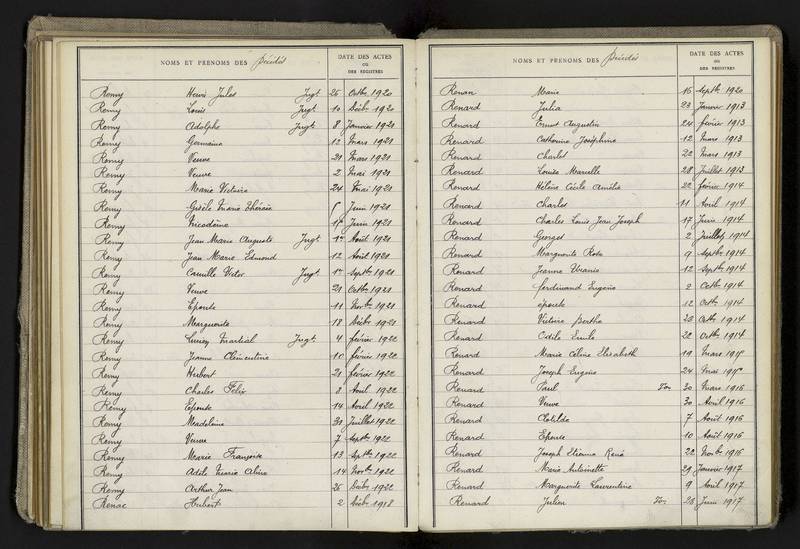 NOMS ET PRENOMS DES Décédés
DATE DES ACTES
OU
DES REGISTRES
Remy Henri Jules Jugt 26 Octbre 1920
Remy Louis Jugt 10 Décb. 1920
Remy Adolphe Jugt 8 Janvier 1921
Remy Germaine 12 Mars 1921
Remy Veuve 21 Mars 1921
Remy Veuve 2 Mai 1921
Remy Marie Victoire 24 Mai 1921
Remy Gisèle Marie Thérèse Juin 1921
Remy Nicodème Juin 1921
Remy Jean Marie Auguste Jugt 1er Août 1921
Remy Jean Marie Edmond 12 Août 1921
Remy Camille Victor Jugt 1er Septbre 1921
Remy Veuve 21 Octbre 1921
Remy Epouse 11 Novbre 1921
Remy Marguerite 18 Décbre 1921
Remy Martial Jugt 4 février 1922
Remy Jeanne Clémentine 10 février 1922
Remy Hubert 21 février 1922
Remy Charles Félix 8 Avril 1922
Remy Epouse 14 Avril 1922
Remy Madeleine 31 Juillet 1922
Remy Veuve 7 Septbre 1922
Remy Marie Françoise 13 Septbre 1922
Remy Adèle Marie Aline 14 Novbre 1922
Remy Arthur Jean 26 Décbre 1922
Renac Hubert 2 Décbre 1918
NOMS ET PRENOMS DES Décédés
DATE DES ACTES
OU
DES REGISTRES
Renan Marie 16 Septbre 1920
Renard Julia 23 Janvier 1913
Renard Ernest Augustin 24 février 1913
Renard Catherine Joséphine 12 Mars 1913
Renard Charles 22 Mars 1913
Renard Louise Marcelle 28 Juillet 1913
Renard Hélène Cécile Amélie 22 février 1914
Renard Charles 11 Avril 1914
Renard Charles Louis Jean Joseph 17 Juin 1914
Renard Georges 2 Juillet 1914
Renard Marguerite Rose 9 Septbre 1914
Renard Jeanne Uranie 12 Septbre 1914
Renard Ferdinand Eugène 2 Octbre 1914
Renard épouse 12 Octbre 1914
Renard Victoire Berthe 20 Octbre 1914
Renard Odile Emile 22 Octbre 1914
Renard Marie Céline Elisabeth 19 Mars
Renard Joseph Eugène 24 Mai
Renard Paul Ton 30 Mars 1916
Renard Veuve 30 Avril 1916
Renard Clotilde 7 Août 1916
Renard Epouse 10 Août 1916
Renard Joseph Etienne René 22 Novbre 1916
Renard Marie Antoinette 29 Janvier 1917
Renard Marguerite Laurentine 9 Avril 1917
Renard Julien Ton 26 Juin 1917